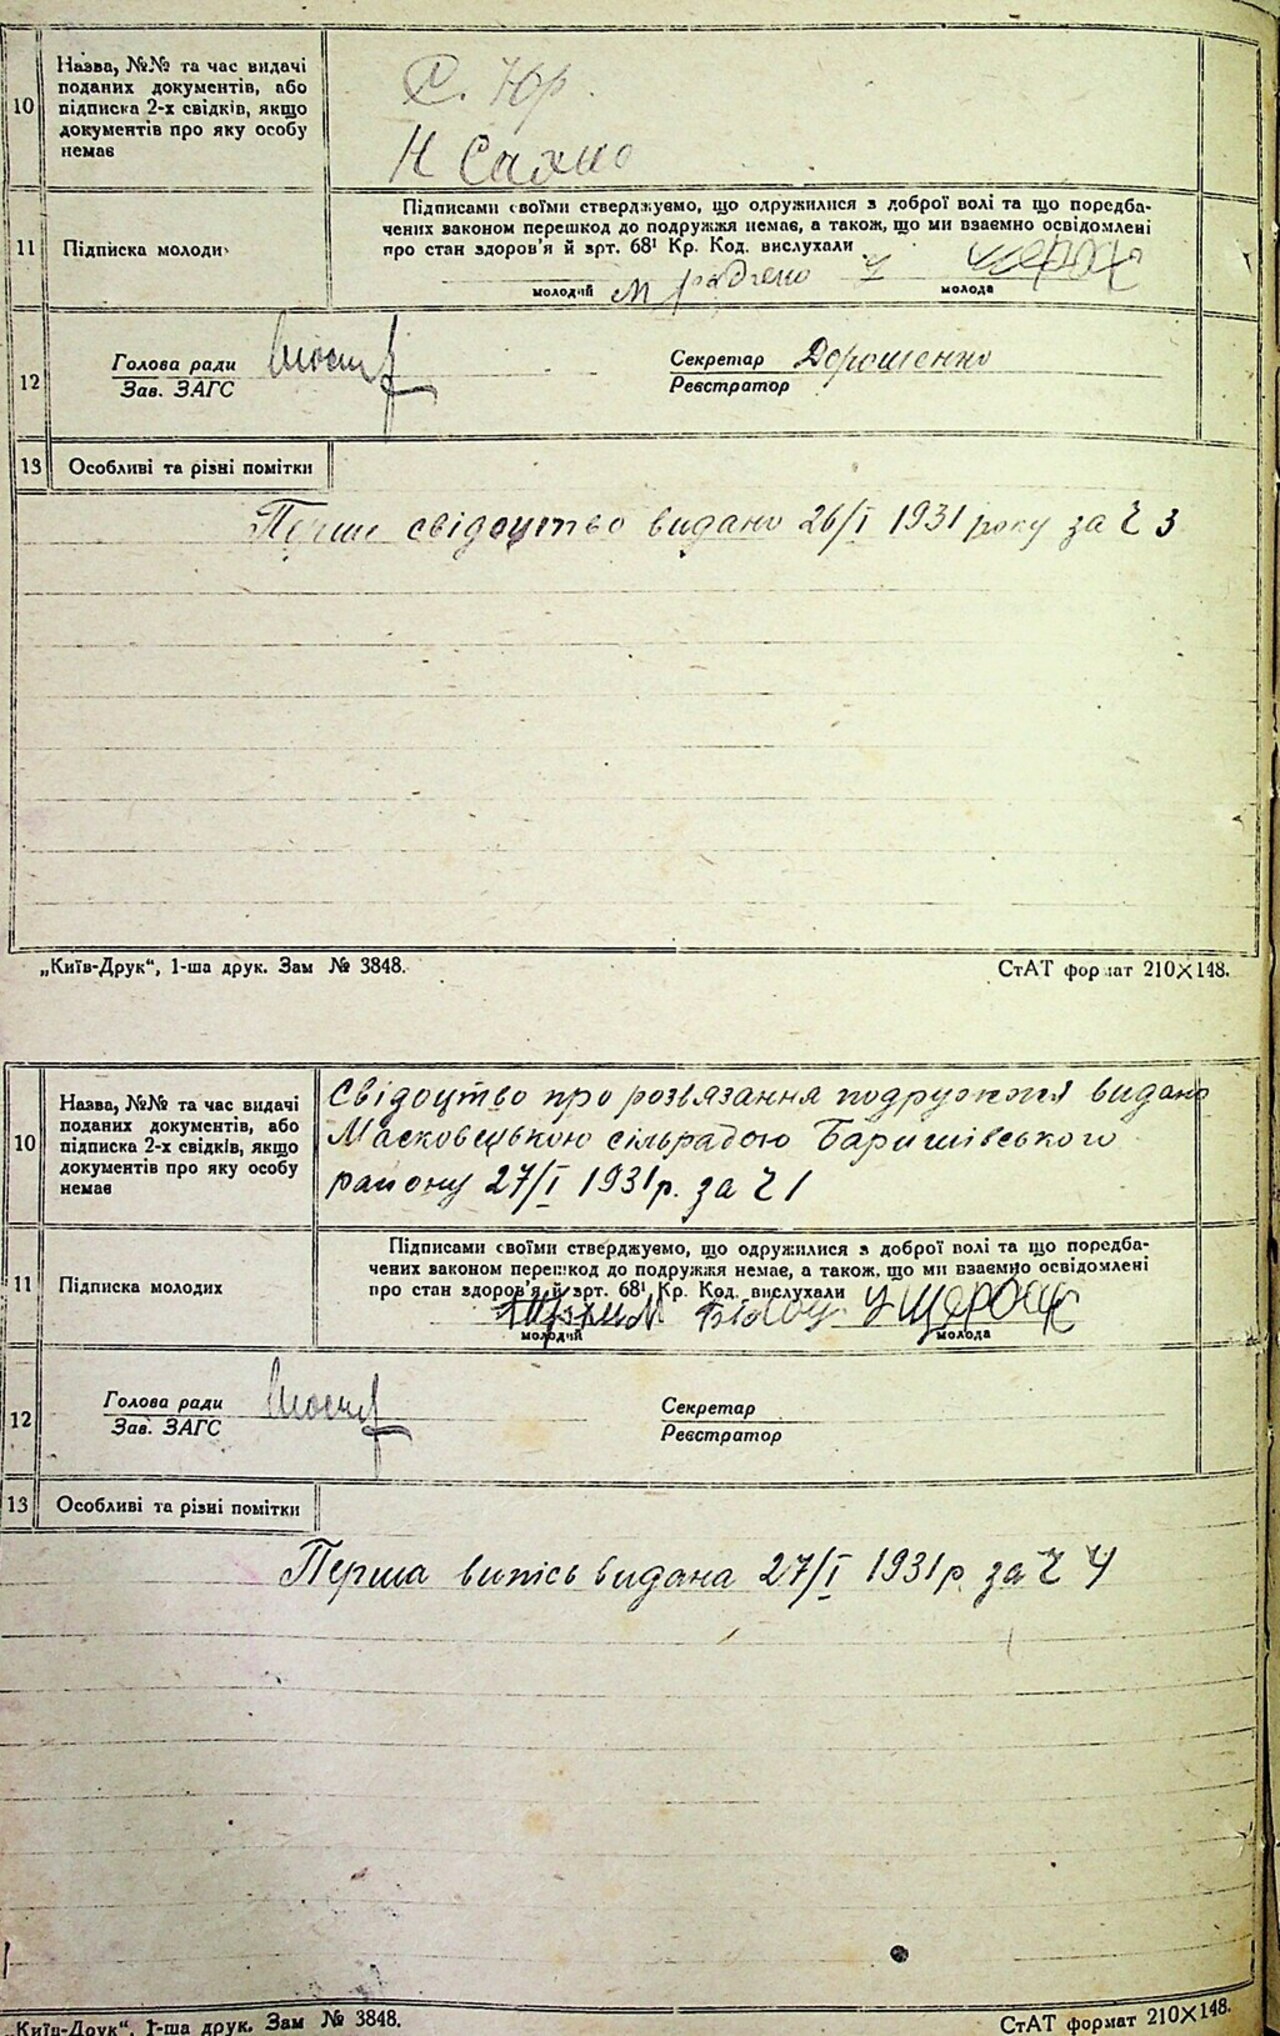 10
Назва, №№ та час видачі
поданих документів, або
підписка 2-х свідків, якщо
документів про яку особу
немає
Н Сахно
11
Підписка молоди
Підписами своїми стверджуємо, що одружилися з доброї волі та що поредба-
чених законом перешкод до подружжя немає, а також, що ми взаємно освідомлені
про стан здоров'я й зрт. 68¹ Кр. Код. вислухали
молодий
молода
12
Голова ради
Зав. ЗАГС
Секретар Дорошенко
Реєстратор
13
Особливі та різні помітки
Перше свідоцтво видано 26/I 1931 року за Ч 3
„Київ-Друк“, 1-ша друк. Зам № 3848.
СтАТ формат 210×148.
10
Назва, №№ та час видачі
поданих документів, або
підписка 2-х свідків, якщо
документів про яку особу
немає
Свідоцтво про розвязання подружжя видано
Масковецькою сільрадою Баришівського
району 27/I 1931 р. за Ч 1
11
Підписка молодих
Підписами своїми стверджуємо, що одружилися з доброї волі та що поредба-
чених законом перешкод до подружжя немає, а також, що ми взаємно освідомлені
про стан здоров'я й зрт. 68¹ Кр. Код. вислухали
молодий
молода
12
Голова ради
Зав. ЗАГС
Секретар
Реєстратор
13
Особливі та різні помітки
Перша випісь видана 27/I 1931 р. за Ч 4
„Київ-Друк“, 1-ша друк. Зам № 3848.
СтАТ формат 210×148.